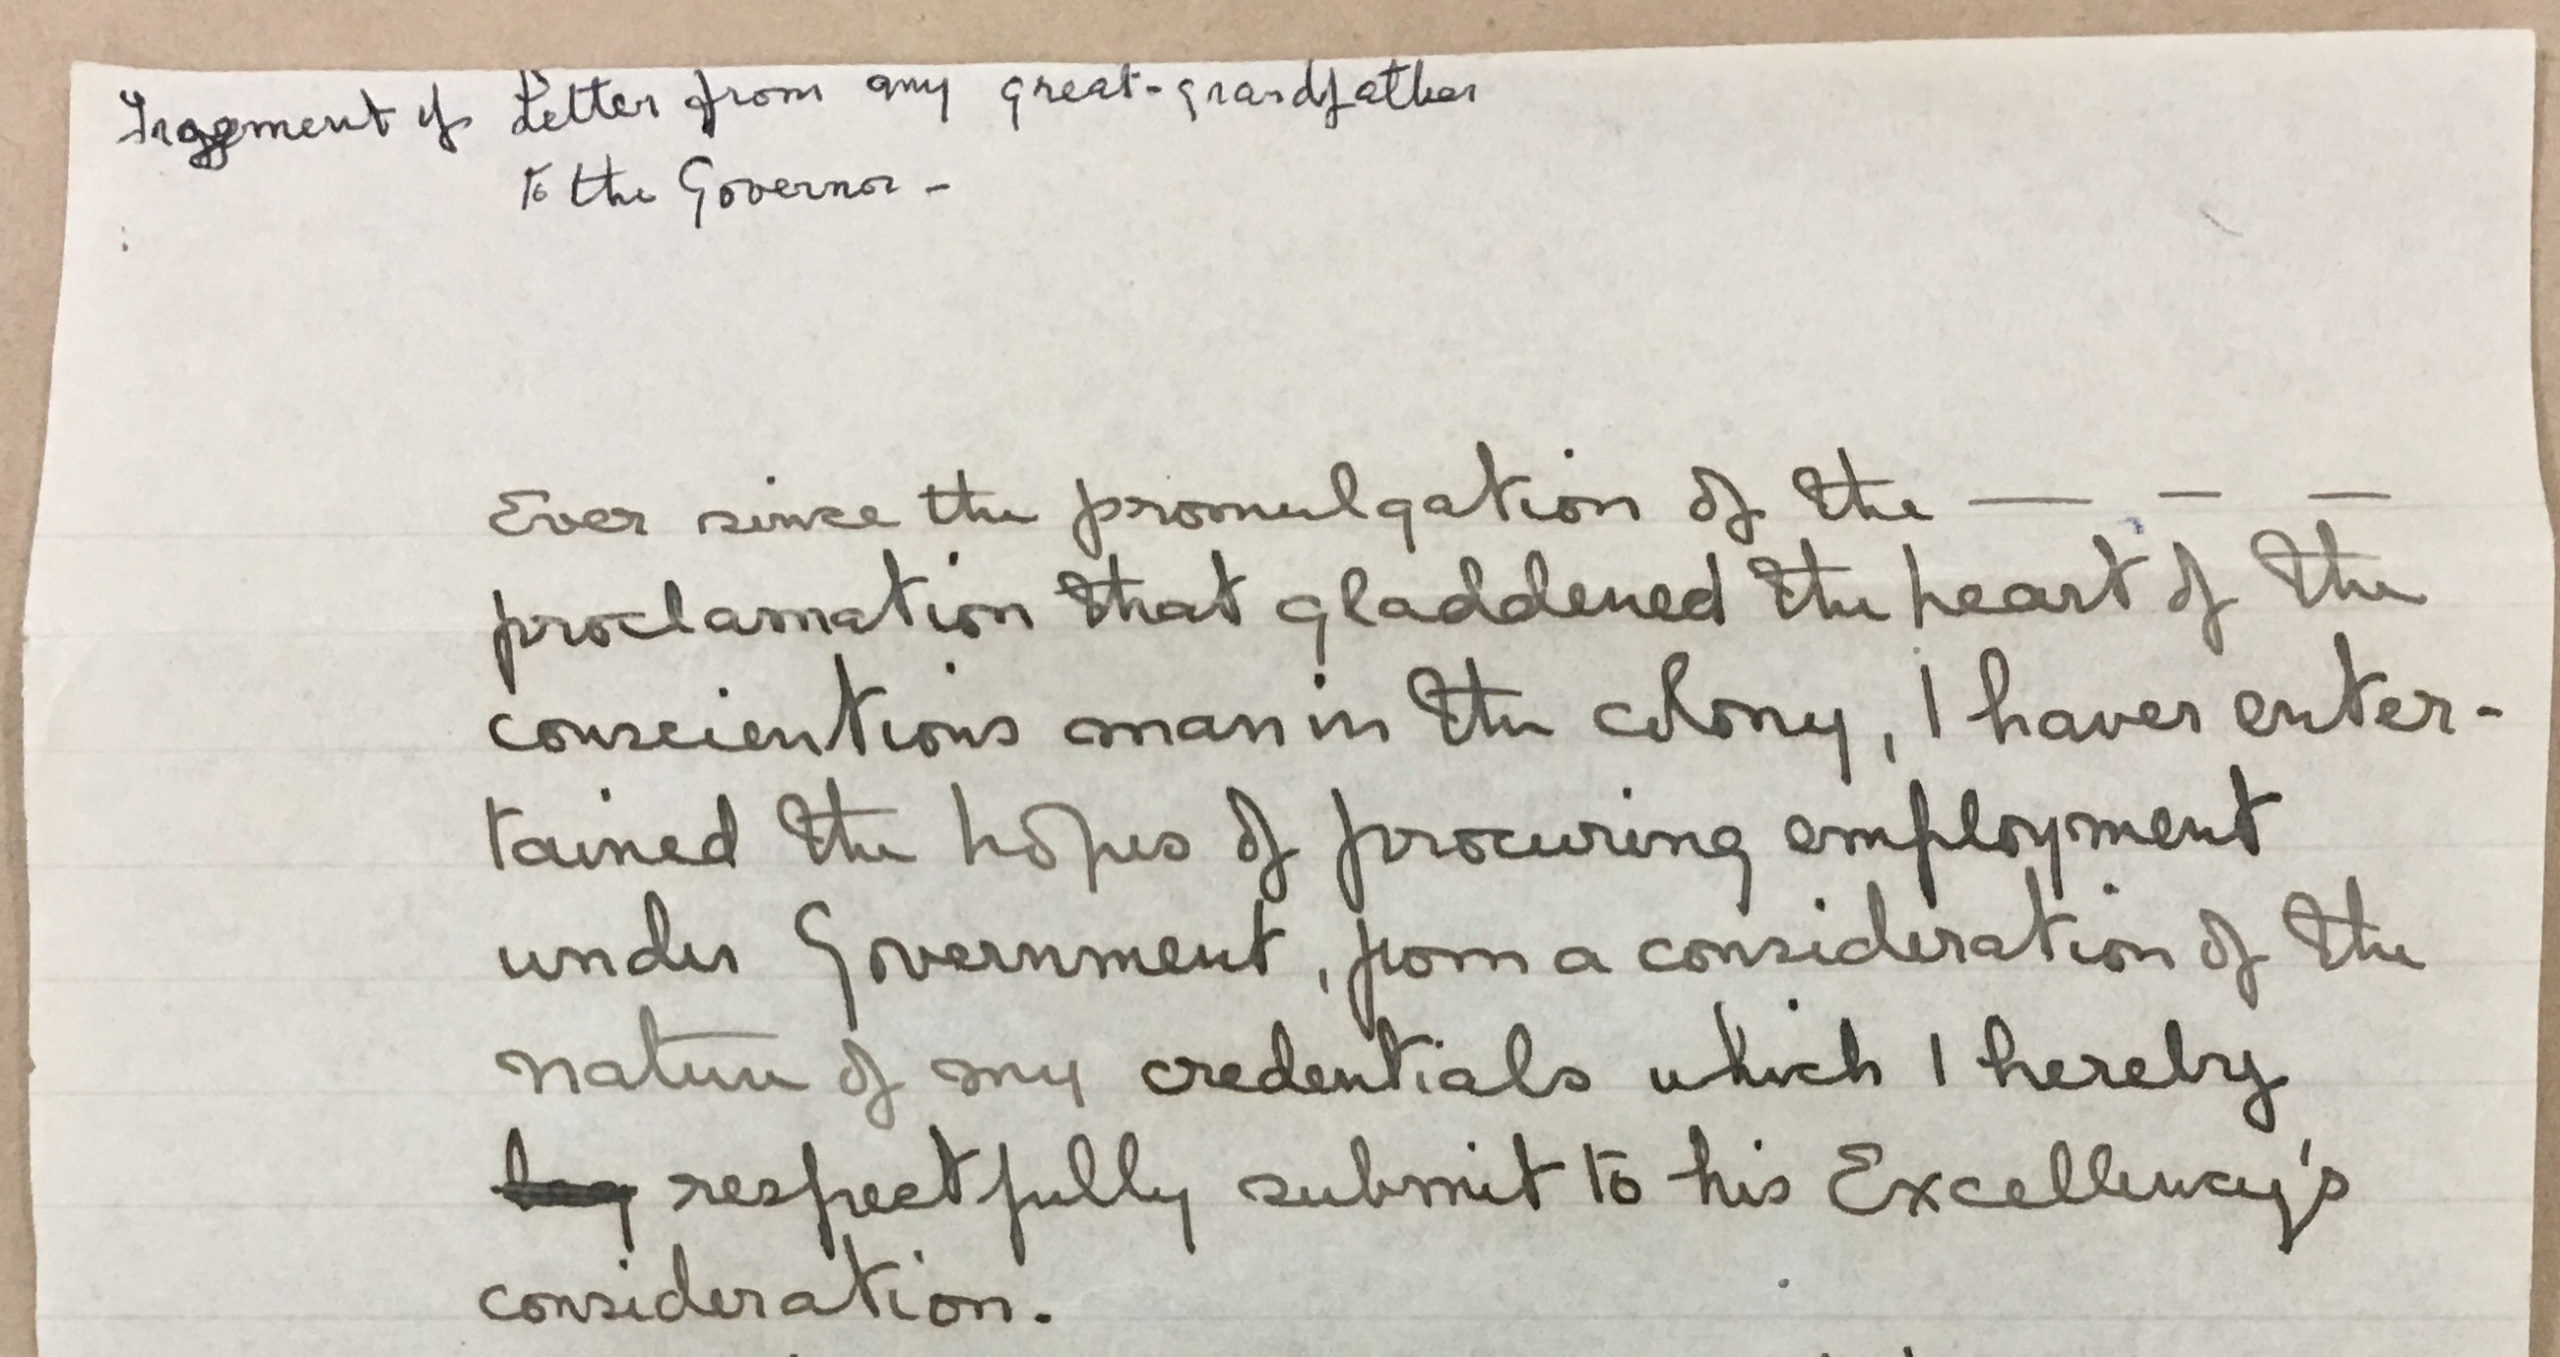 Fragment of Letter from my great-grandfather
to the Governor -
Ever since the promulgation of the — — —
proclamation that gladdened the heart of the
conscientious man in the colony, I haver enter-
tained the hopes of procuring employment
under Government, from a consideration of the
nature of my credentials which I hereby
beg respectfully submit to his Excellency's
consideration.